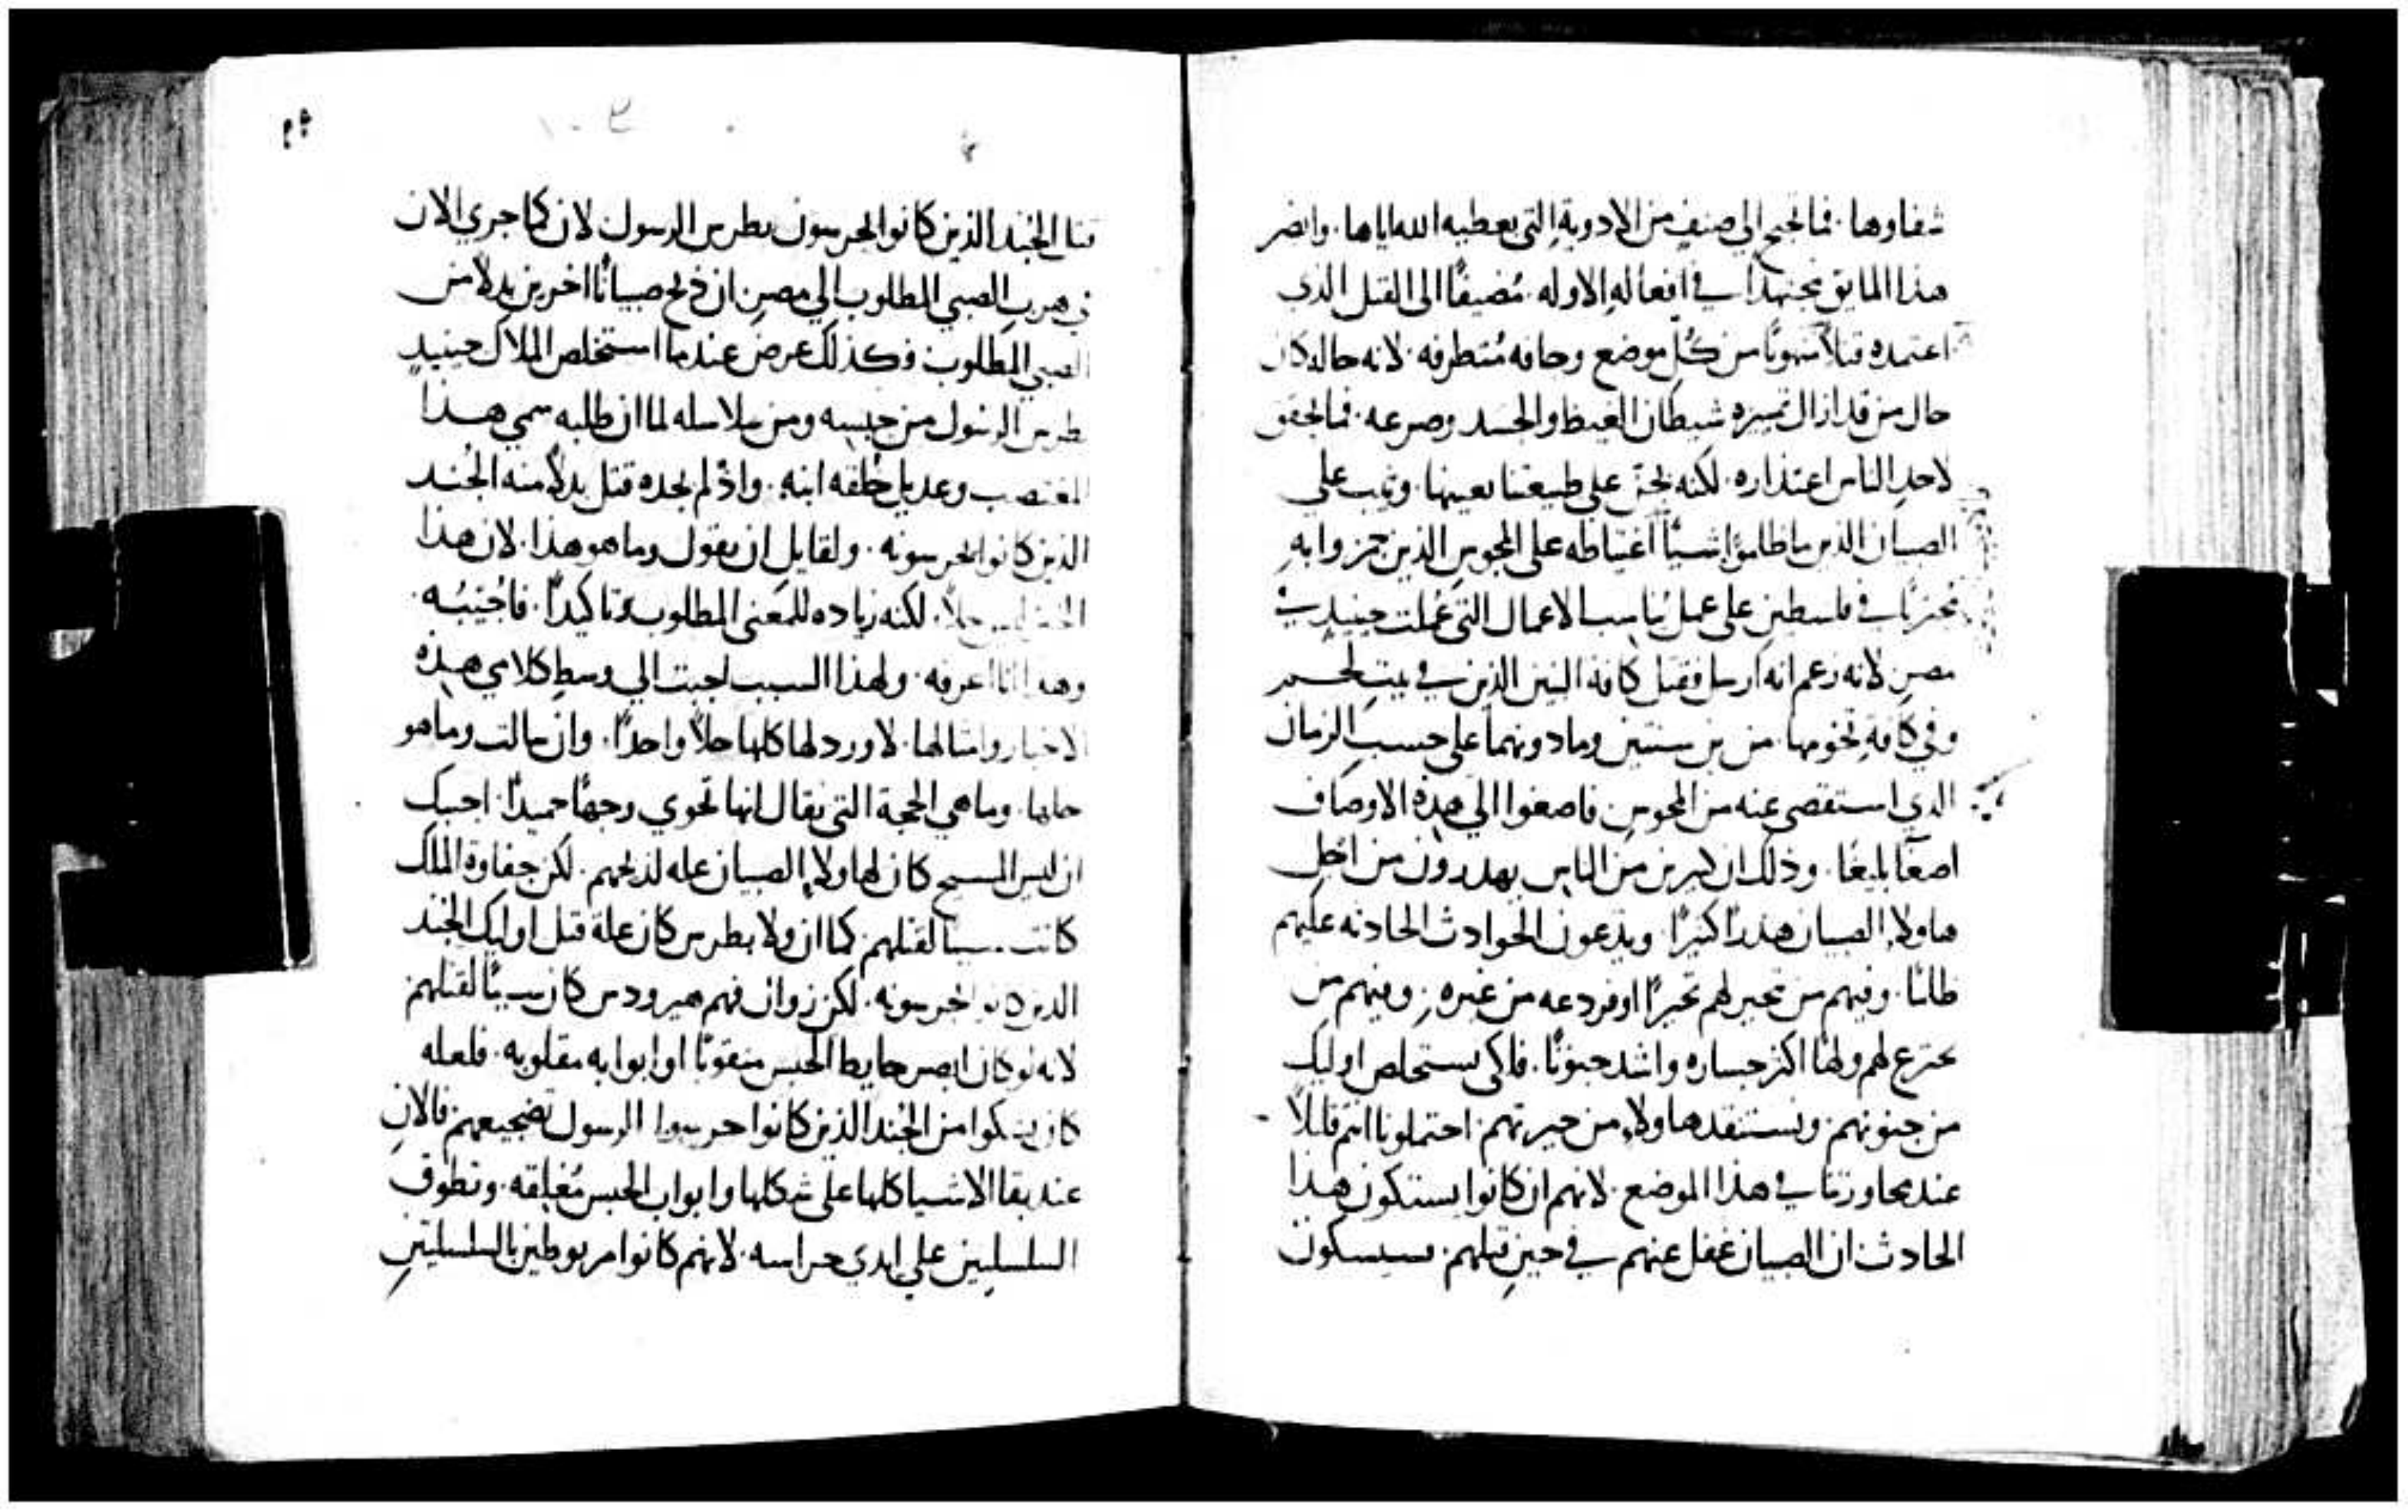 شفاوها. فما تحتج الي صنف من الادوية التي يعطيه الله اياها. وابصر
هذا المايق مجتهدا في افعاله الاوله. مضيفا الى القتل الذي
اعتمده قتلا من كل موضع وحافه متطرفه. لانه حاله كان
حال من قد ازال تميزه شيطان الغيظ والحسد وصرعه. فما يحقق
لاحد الناس اعتذاره. لكنه يجن على طبيعتنا بعينها. ويثب على
الصبيان الذين ما ظلموا شيا اغتياظه على المجوس الذين هزوا به
في فلسطين على عمل يناسب الاعمال التي عملت حينيد في
مصر لانه زعم انه ارسل فقتل كافة البنين الذين في بيت لحم
وفي كافة تخومها. من بن سنتين وما دونهما على حسب الزمان
الذي استقصى عنه من المجوس فاصغوا الي هذه الاوصاف
اصغا بليغا. وذلك ان كثيرين من الناس يهدرون من اجل
هاولاء الصبيان هدرا كثيرا. ويدعون الحوادث الحادثه عليهم
ظلما. ومنهم من تحير لهم تحيرا اوفر دعه من غيره. ومنهم من
يخترع لهم ولها اكثر جساره واشد جنونا. فلكي نستخلص اوليك
من جنونهم ونستنقذ هاولاء من حيرتهم احتملونا انتم قليلا
عند محاورتنا في هذا الموضع. لانهم ان كانوا يشتكون هذا
الحادث ان الصبيان غفل عنهم في حين قتلهم. سيشكون
٥٩
قتل الجند الذين كانوا يحرسون بطرس الرسول لان كما جري الان
في هرب الصبي المطلوب الي مصر ان ذبح صبيانا اخرين بدلا من
الصبي المطلوب وكذلك عرض عندما استخلص الملاك حينيد
بطرس الرسول من حبسه ومن سلاسله لما ان طلبه سمي هذا
المغتصب وعديل خلقه ابنه. واذ لم يجده قتل بدلا منه الجند
الذين كانوا يحرسونه. ولقايل ان يقول وما هو هذا. لان هذا
ليس حلا. لكنه زياده للمعنى المطلوب تاكيدا. فاجيبه.
وهذا انا اعرفه. ولهذا السبب اجبت الي وسط كلامي هذه
الاخبار وامثالها. لاورد لها كلها حلا واحدا. وان سالت وما هو
حلها. وما هي الحجة التي يقال انها تحوي وجها حميدا. اجبتك
ان ليس المسيح كان لهاولاء الصبيان عله لذبحهم. لكن جفاوة الملك
كانت سببا لقتلهم. كما ان ولا بطرس كان علة قتل اوليك الجند
الذين كانوا يحرسونه. لكن زوال فهم هيرودس كان سببا لقتلهم
لانه لو كان ابصر حايط الحبس منقوبا او ابوابه مقلوبه. فلعله
كان يشكوا من الجند الذين كانوا حرسوا الرسول تضجيعهم فالان
عند بقا الاشيا كلها على شكلها وابواب الحبس مغلقه. وتطوف
السلسلتين على ايدي حراسه. لانهم كانوا مربوطين بالسلسلتين